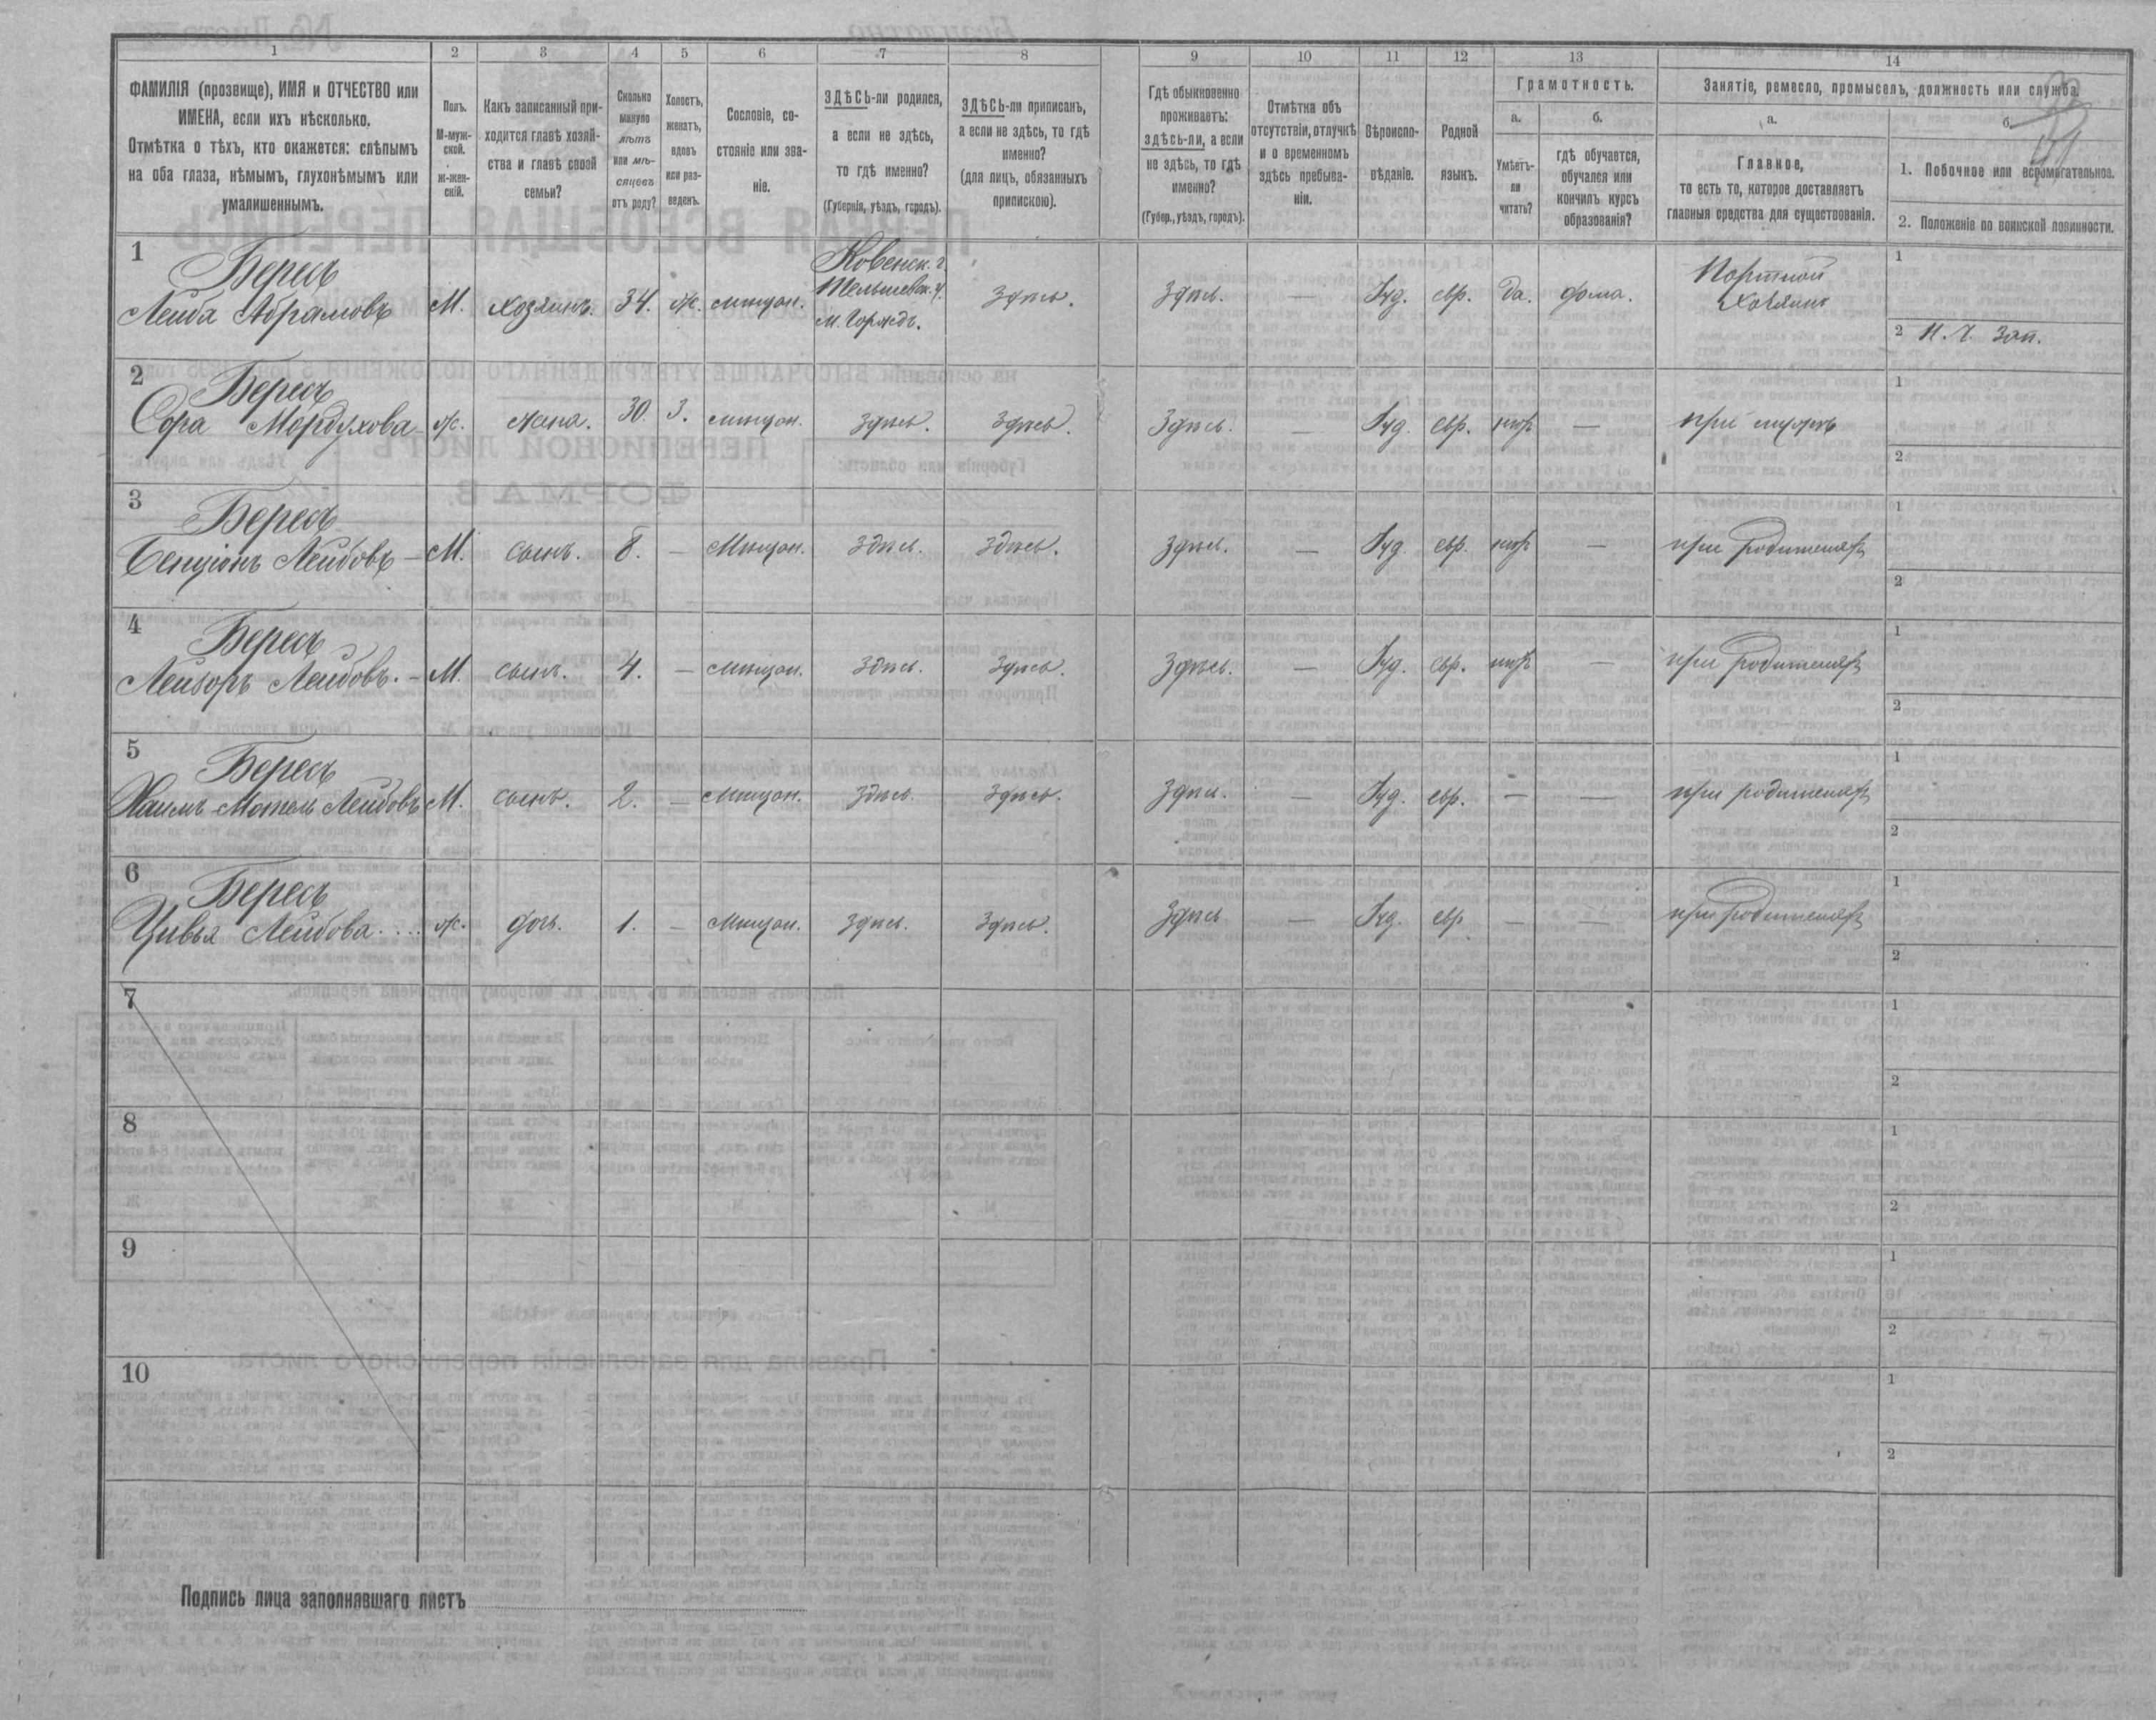 1 2 3 4 5 6 7 8 9 10 11 12 13 14
ФАМИЛІЯ (прозвище), ИМЯ и ОТЧЕСТВО или
ИМЕНА, если ихъ нѣсколько.
Отмѣтка о тѣхъ, кто окажется: слѣпымъ
на оба глаза, нѣмымъ, глухонѣмымъ или
умалишеннымъ.
Полъ.
М-муж-
ской.
ж-жен-
скій.
Какъ записанный при-
ходится главѣ хозяй-
ства и главѣ своей
семьи?
Сколько
минуло
лѣтъ
или мѣ-
сяцевъ
отъ роду?
Холостъ,
женатъ,
вдовъ
или раз-
веденъ.
Сословіе, со-
стояніе или зва-
ніе.
ЗДѢСЬ-ли родился,
а если не здѣсь,
то гдѣ именно?
(Губернія, уѣздъ, городъ).
ЗДѢСЬ-ли приписанъ,
а если не здѣсь, то гдѣ
именно?
(для лицъ, обязанныхъ
припискою).
Гдѣ обыкновенно
проживаетъ:
здѣсь-ли, а если
не здѣсь, то гдѣ
именно?
(Губер., уѣздъ, городъ).
Отмѣтка объ
отсутствіи, отлучкѣ
и о временномъ
здѣсь пребыва-
ніи.
Вѣроиспо-
вѣданіе.
Родной
языкъ.
Грамотность.
а.
Умѣетъ-
ли
читать?
б.
гдѣ обучается,
обучался или
кончилъ курсъ
образованія?
Занятіе, ремесло, промыселъ, должность или служба.
а.
Главное,
то есть то, которое доставляетъ
главныя средства для существованія.
б.
1. Побочное или вспомогательное.
2. Положеніе по воинской повинности.
1 Бересъ
Лейба Абрамовъ М. хозяинъ. 34. ж. мѣщан. Ковенск. г.
Тельшевск. у.
м. Горжды. здѣсь. здѣсь. — Іуд. евр. да. дома. Портной
Хозяинъ 1
2 Н. Ч. зап.
2 Бересъ
Сора Мордухова ж. жена. 30. з. мѣщан. здѣсь. здѣсь. здѣсь. — Іуд. евр. нѣт — при мужѣ 1
2
3 Бересъ
Бенціонъ Лейбовъ — М. сынъ. 8. — мѣщан. здѣсь. здѣсь. здѣсь. — Іуд. евр. нѣт — при родителях 1
2
4 Бересъ
Лейзоръ Лейбовъ. — М. сынъ. 4. — мѣщан. здѣсь. здѣсь. здѣсь. — Іуд. евр. нѣт — при родителях 1
2
5 Бересъ
Хаимъ-Мотель Лейбовъ М. сынъ. 2. — мѣщан. здѣсь. здѣсь. здѣсь. — Іуд. евр. — — при родителях 1
2
6 Бересъ
Цивья Лейбова.... ж. дочь. 1. — мѣщан. здѣсь. здѣсь. здѣсь — Іуд. евр — — при родителях 1
2
7 1
2
8 1
2
9 1
2
10 1
2
Подпись лица заполнявшаго листъ